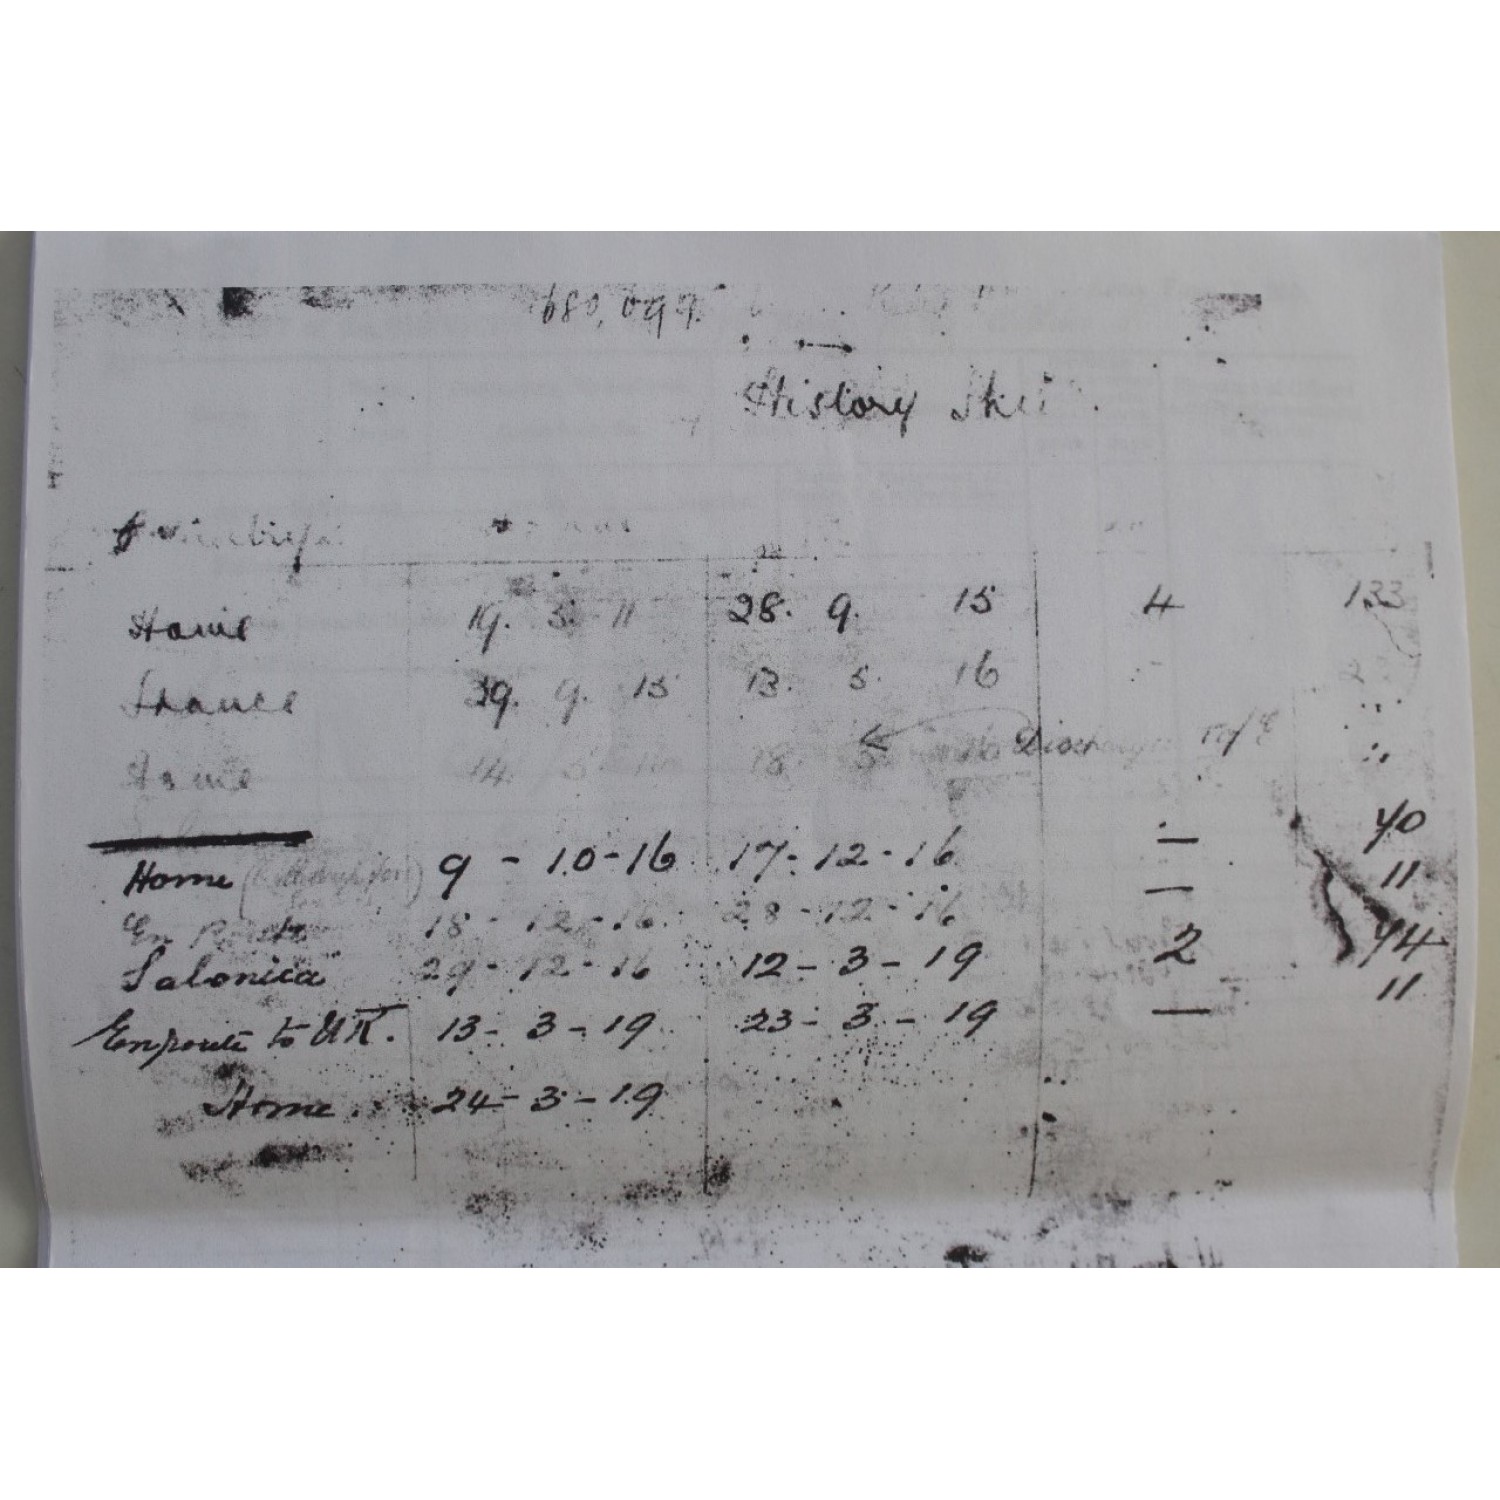 680,099
History
Home 19. 5. 11 28. 9. 15 4 133
France 29. 9. 15 13. 5. 16
Home 14. 5. 16 18. 5. 16 T/E
Home 9 - 10 - 16 17 - 12 - 16 — 70
En Route 18 - 12 - 16 28 - 12 - 16 — 11
Salonica 29 - 12 - 16 12 - 3 - 19 2 74
Enroute to UK. 13 - 3 - 19 23 - 3 - 19 — 11
Home. 24 - 3 - 19